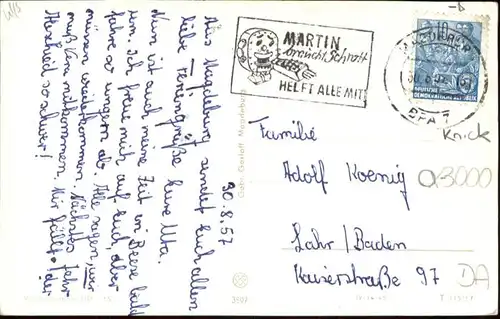 30.8.57
Aus Magdeburg sendet Euch allen
liebe Feriengrüße Eure Uta.
Nun ist auch meine Zeit in Beese bald
um. Ich freue mich auf Euch, aber
fahre so ungern ab. Alle sagen, wir
müssen wiederkommen. Nächstes Jahr
muß Vera mitkommen. Mir fällt der
Abschied so schwer!
MARTIN
braucht Schrott
HELFT ALLE MIT!
MAGDEBURG
BPA
10
DEUTSCHE
DEMOKRATISCHE REPUBLIK
Knick
Familie
Adolf Koenig
Lahr/Baden
Kaiserstraße 97
03000
DA
Gebr. Garloff, Magdeburg